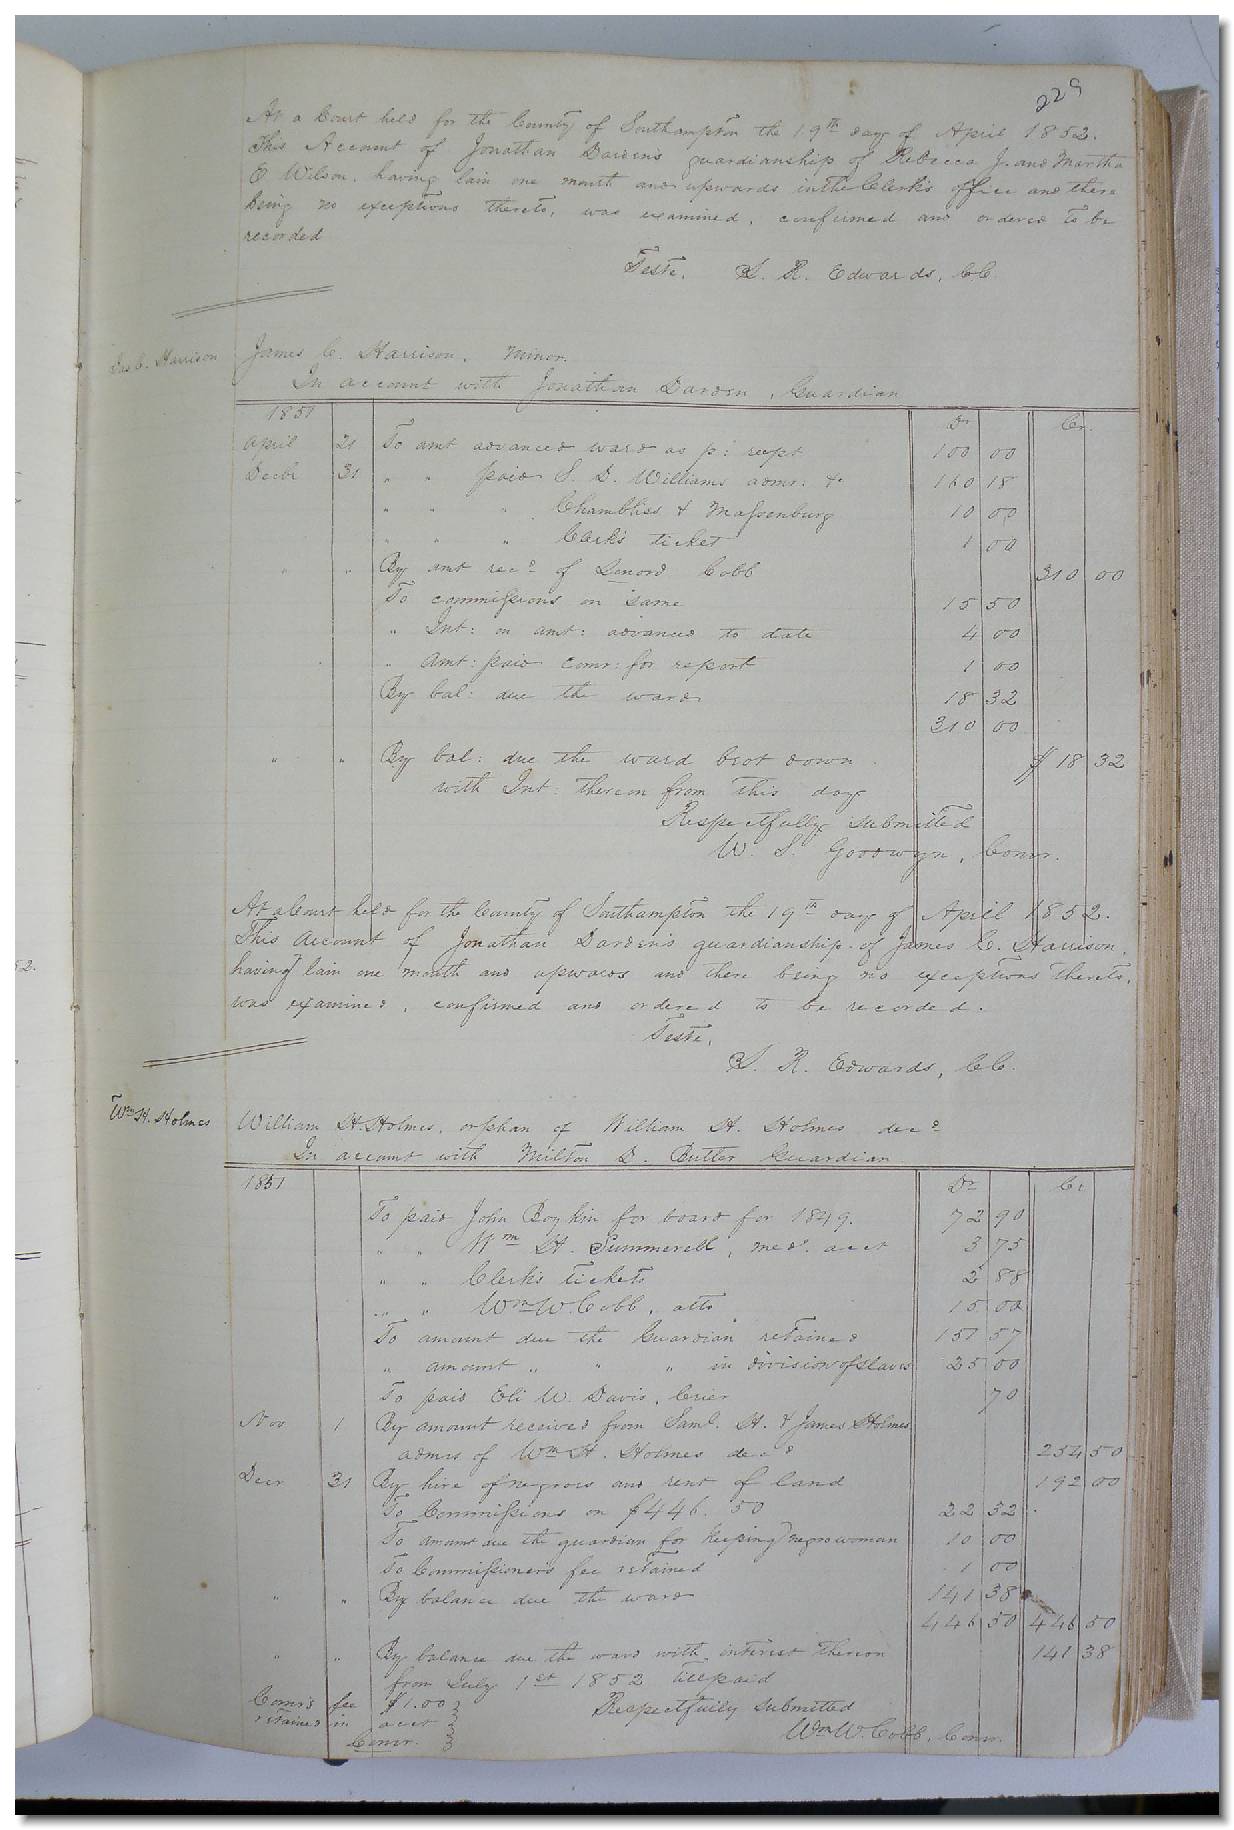 229
At a Court held for the County of Southampton the 19th day of April 1852.
This Account of Jonathan Darden's guardianship of Rebecca J. and Martha
E Wilson, having lain one month and upwards in the Clerk's office and there
being no exceptions thereto, was examined, confirmed and ordered to be
recorded
Teste, L. R. Edwards, CC.
Jas C. Harrison
James C. Harrison, Minor.
In account with Jonathan Darden, Guardian
1851 Dr Cr.
April 21 To amt advanced ward as pr: recpt 100 00
Decbr 31 " " paid S. D. Williams admr: &c 160 18
" " " Chambliss & Massenburg 10 00
" " " Clerk's ticket 1 00
" " By amt recd of Lenord Cobb 310 00
To commissions on same 15 50
" Int: on amt: advanced to date 4 00
" Amt: paid comr: for report 1 00
By bal: due the ward 18 32
310 00
" " By bal: due the ward brot down $18 32
with Int: thereon from this day
Respectfully submitted
W. S. Goodwyn, Comr.
At a Court held for the County of Southampton the 19th day of April 1852.
This account of Jonathan Darden's guardianship of James C. Harrison,
having lain one month and upwards and there being no exceptions thereto,
was examined, confirmed and ordered to be recorded.
Teste,
L. R. Edwards, CC.
Wm H. Holmes
William H. Holmes, orphan of William H. Holmes decd
In account with Milton D. Butler Guardian
1851 Dr Cr
To paid John Boykin for board for 1849. 72 90
" " Wm H. Summerell, med. acct 3 75
" " Clerk's tickets 2 88
" " Wm W. Cobb, atto 15 00
To amount due the Guardian retained 151 57
" amount " " " in division of slaves 25 00
To paid Eli W. Davis, Crier 70
Nov 1 By amount received from Saml. H. & James Holmes
admrs of Wm H. Holmes decd 254 50
Decr 31 By hire of negroes and rent of land 192 00
To Commissions on $446.50 22 32
To amount due the guardian for keeping negro woman 10 00
To Commissioners fee retained 1 00
" " By balance due the ward 141 38
446 50 446 50
" " By balance due the ward with interest thereon 141 38
from July 1st 1852 till paid
Comr's fee $1.00 Respectfully submitted
retained in acct
Comr. Wm W. Cobb, Comr.